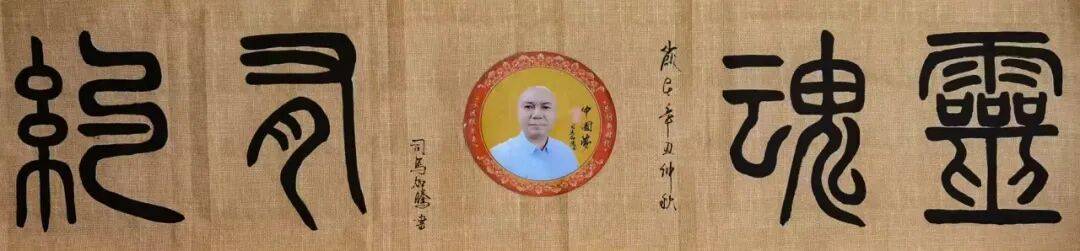 靈魂
歲在辛丑仲秋
中國夢
有約
司馬 書